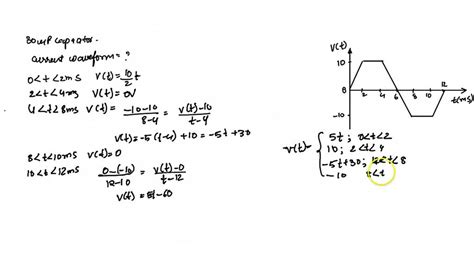 30μF capacitor.
current waveform = ?
0<t<2ms v(t)= 10/2 t
2<t<4ms v(t)= 0V
4<t<8ms v(t)= -10-10/8-4 = v(t)-10/t-4
v(t)=-5(t-4)+10=-5t+30
8<t<10ms v(t)=0
10<t<12ms 0-(-10)/12-10 = v(t)-0/t-12
v(t)= 5t-60
v(t)
10
0
2 4 6 8 10 12 t(ms)
-10
v(t)= { 5t; 0<t<2
10; 2<t<4
-5t+30; <t<8
-10